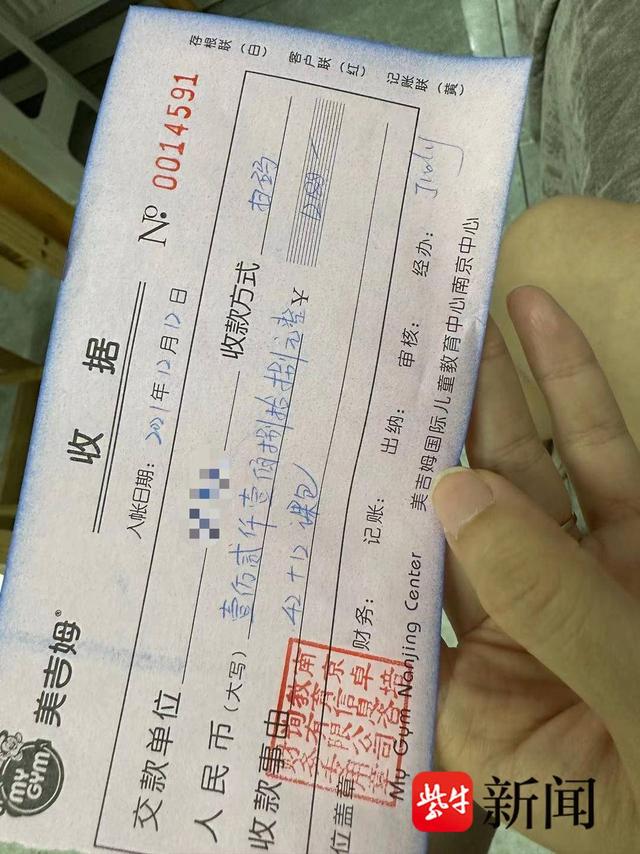 MY GYM
美吉姆®
收 据
№ 0014591
入帐日期：2021年12月12日
交款单位 收款方式 扫码
人民币（大写）壹万贰仟壹佰捌拾捌元整 ￥
收款事由 42+12 课包
位盖章 财务： 记账： 出纳： 审核： 经办：
My Gym Nanjing Center 美吉姆国际儿童教育中心南京中心
存根联（白） 客户联（红） 记账联（黄）
南京卓
教育信息咨
询有限公司
财务专用章
紫牛新闻